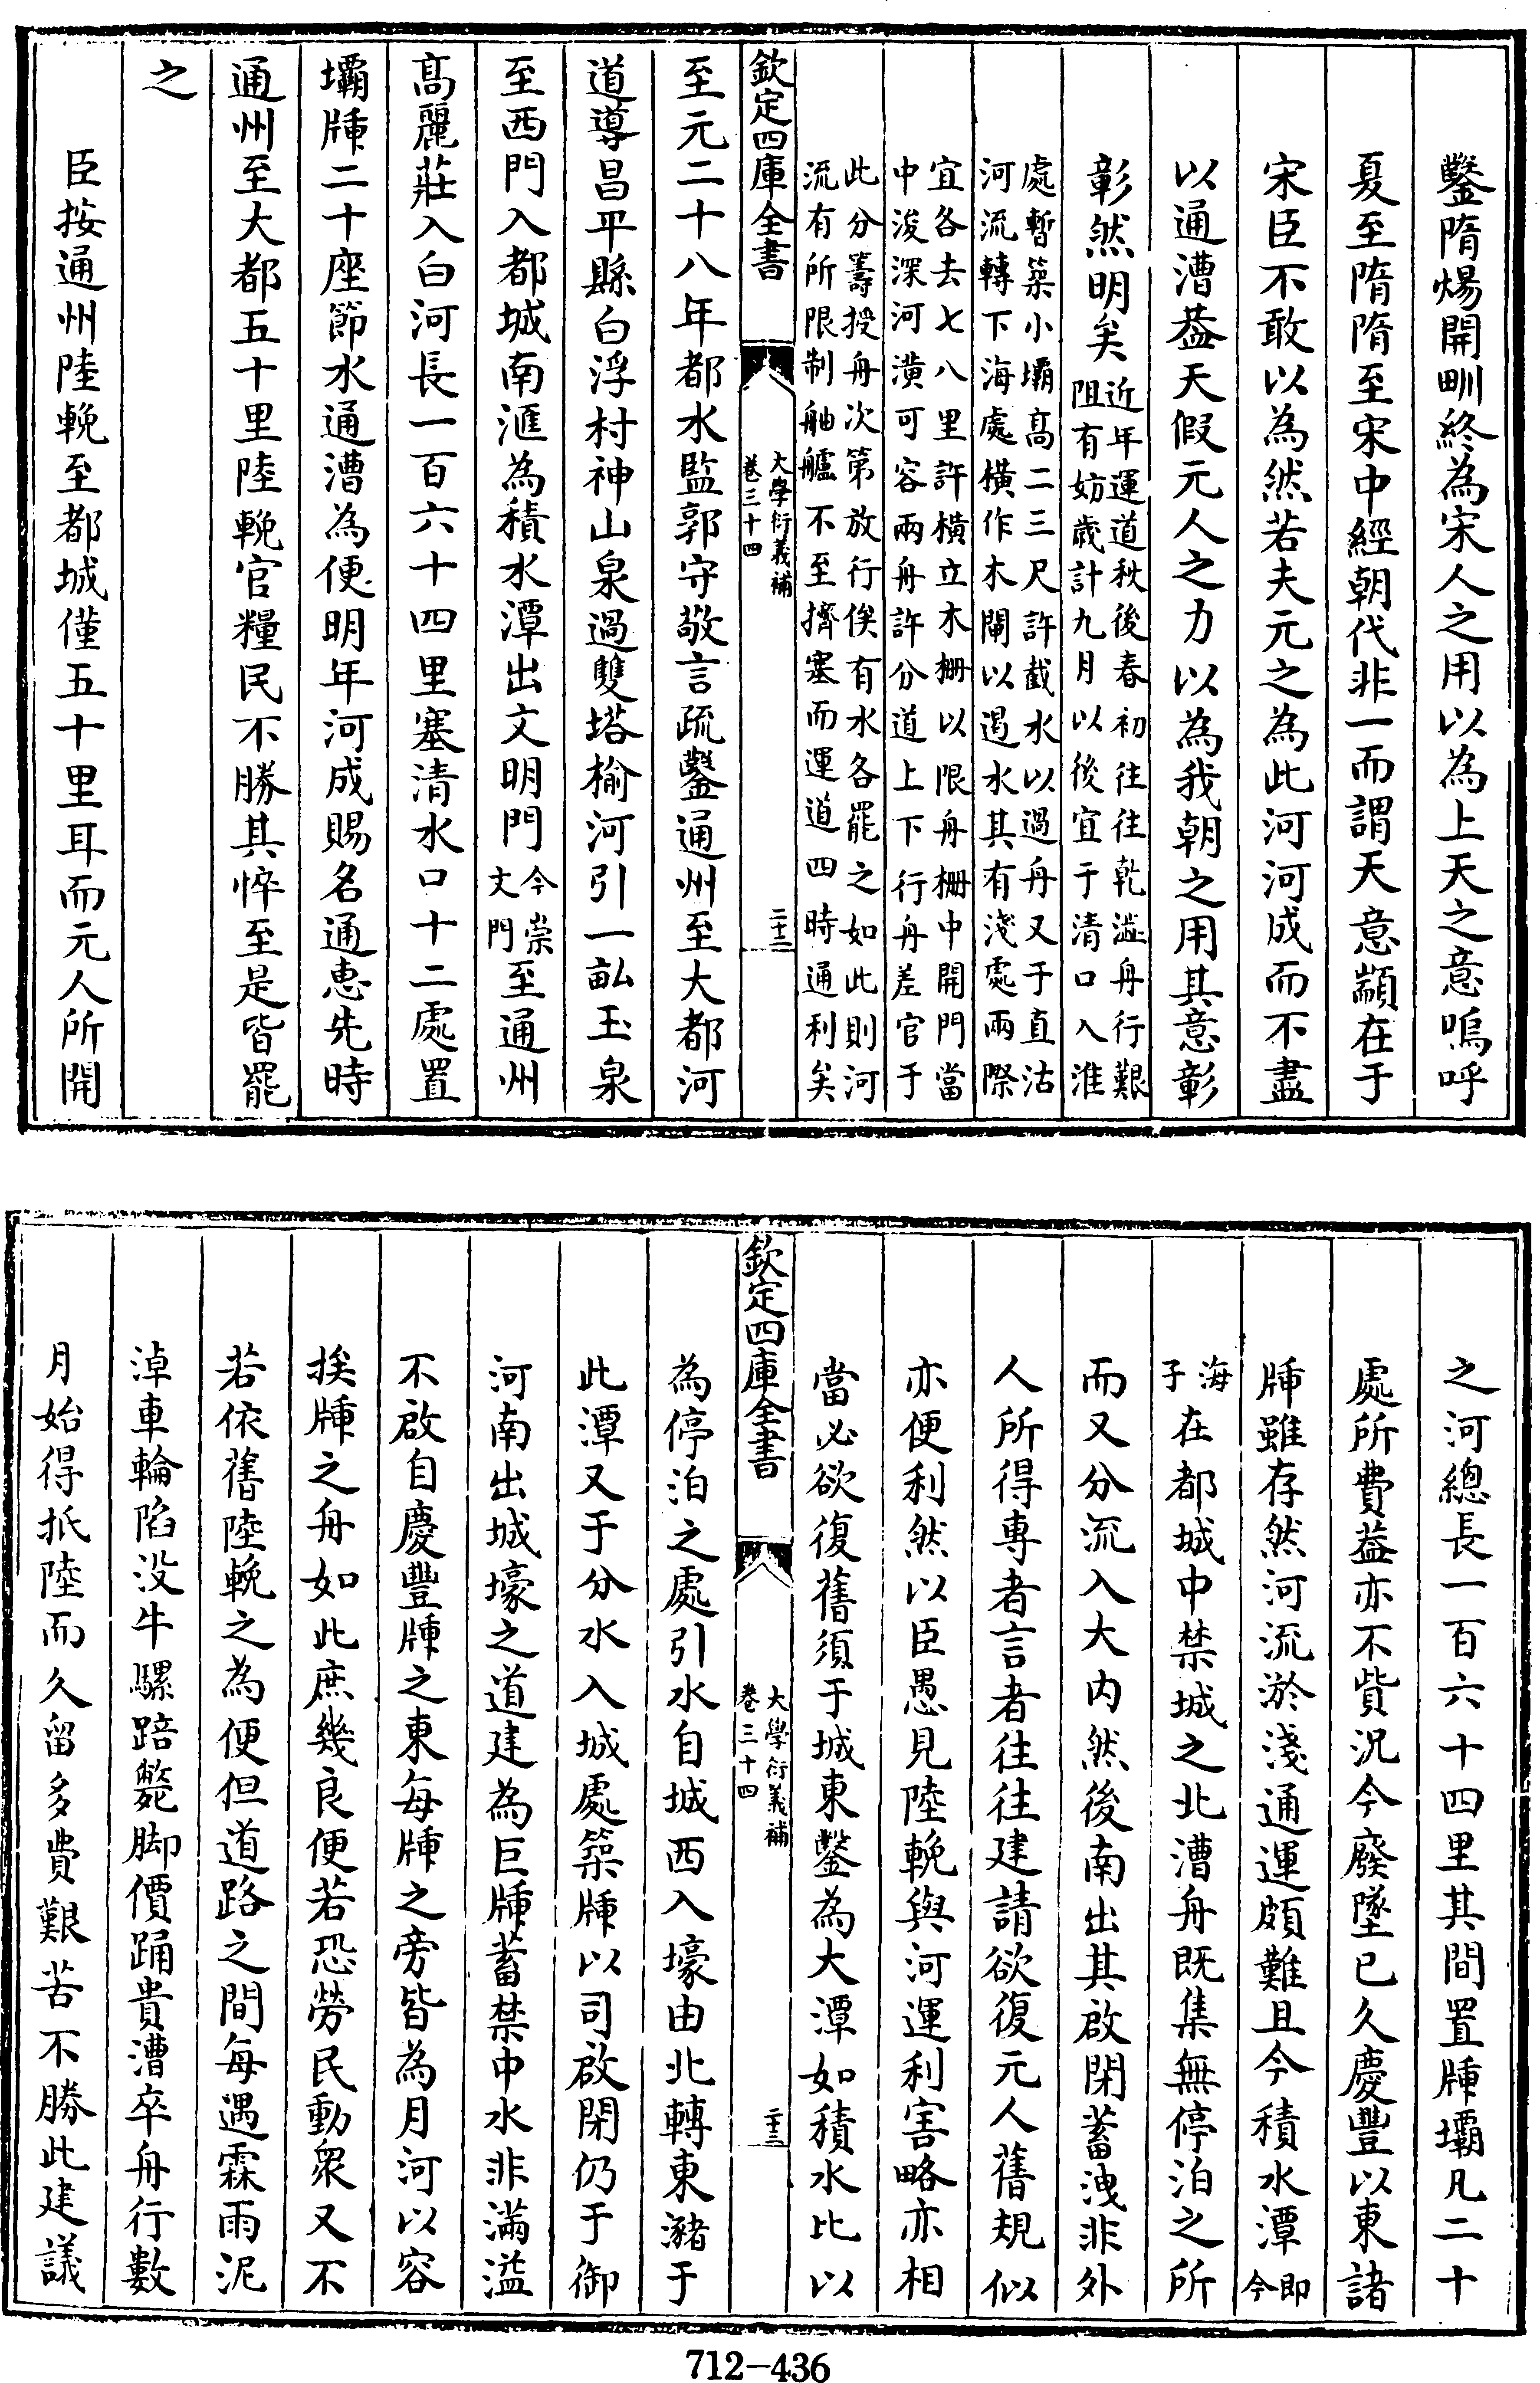 鑿隋煬開甽終為宋人之用以為上天之意嗚呼
夏至隋隋至宋中經朝代非一而謂天意顓在于
宋臣不敢以為然若夫元之為此河河成而不盡
以通漕葢天假元人之力以為我朝之用其意彰
彰然明矣
近年運道秋後春初往往乾澁舟行艱
阻有妨歳計九月以後宜于清口入淮
處暫築小壩高二三尺許截水以過舟又于直沽
河流轉下海處横作木閘以遏水其有淺處兩際
宜各去七八里許横立木柵以限舟柵中開門當
中浚深河潢可容兩舟許分道上下行舟差官于
此分籌授舟次第放行俟有水各罷之如此則河
流有所限制舳艫不至擠塞而運道四時通利矣
欽定四庫全書
大學衍義補
卷三十四
二十二
至元二十八年都水監郭守敬言疏鑿通州至大都河
道導昌平縣白浮村神山泉過雙塔榆河引一畝玉泉
至西門入都城南滙為積水潭出文明門
今崇
文門
至通州
髙麗莊入白河長一百六十四里塞清水口十二處置
壩牐二十座節水通漕為便明年河成賜名通惠先時
通州至大都五十里陸輓官糧民不勝其悴至是皆罷
之
臣按通州陸輓至都城僅五十里耳而元人所開
之河總長一百六十四里其間置牐壩凡二十
處所費葢亦不貲況今廢墜已久慶豐以東諸
牐雖存然河流淤淺通運頗難且今積水潭
即今
海子
在都城中禁城之北漕舟既集無停泊之所
而又分流入大内然後南出其啟閉蓄洩非外
人所得専者言者往往建請欲復元人舊規似
亦便利然以臣愚見陸輓與河運利害略亦相
當必欲復舊須于城東鑿為大潭如積水比以
欽定四庫全書
大學衍義補
卷三十四
二十三
為停泊之處引水自城西入壕由北轉東瀦于
此潭又于分水入城處築牐以司啟閉仍于御
河南出城壕之道建為巨牐蓄禁中水非滿溢
不啟自慶豐牐之東每牐之旁皆為月河以容
挨牐之舟如此庶幾良便若恐勞民動衆又不
若依舊陸輓之為便但道路之間每遇霖雨泥
淖車輪陷没牛騾踣斃脚價踊貴漕卒舟行數
月始得抵陸而久留多費艱苦不勝此建議
712-436